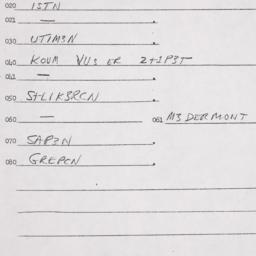 020 ISTN
021 —
030 UTIM3N
040 KOUM VUS ER 2+1P3T
041 —
050 S+LIK3RCN
060 — 061 M3 DERMONT
070 SAP3N
080 GREPCN